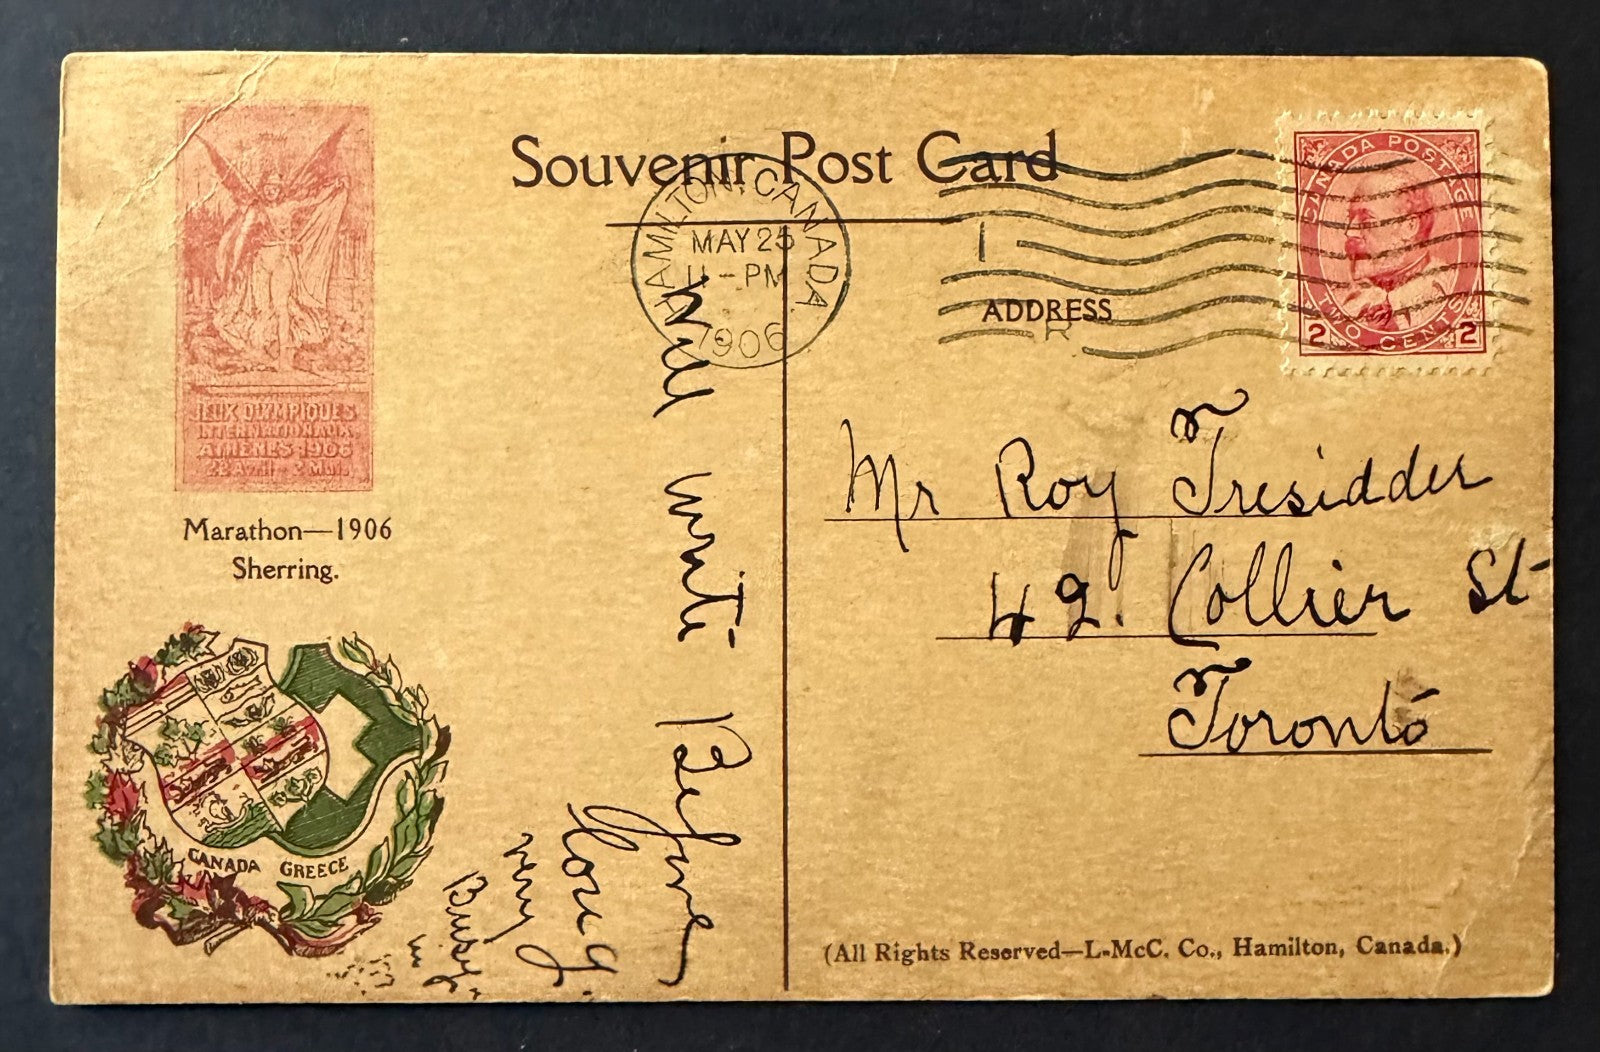 Souvenir Post Card
HAMILTON. CANADA
MAY 25
11 - PM
1906
CANADA POSTAGE
2 TWO CENTS 2
JEUX OLYMPIQUES
INTERNATIONAUX
ATHÈNES 1906
22 Avril - 2 Mai.
Marathon—1906
Sherring.
CANADA GREECE
ADDRESS
R
Mr Roy Tresidder
42. Collier St
Toronto
Will write Before
long.
very
Busy
(All Rights Reserved—L-McC. Co., Hamilton, Canada.)